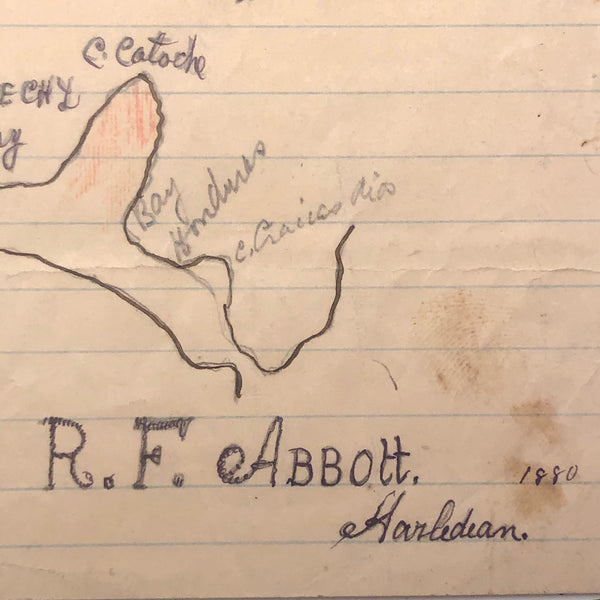 C. Catoche
ECHY
y
Bay
Honduras
C. Gracias Dios
R. F. ABBott.
1880
Harledean.